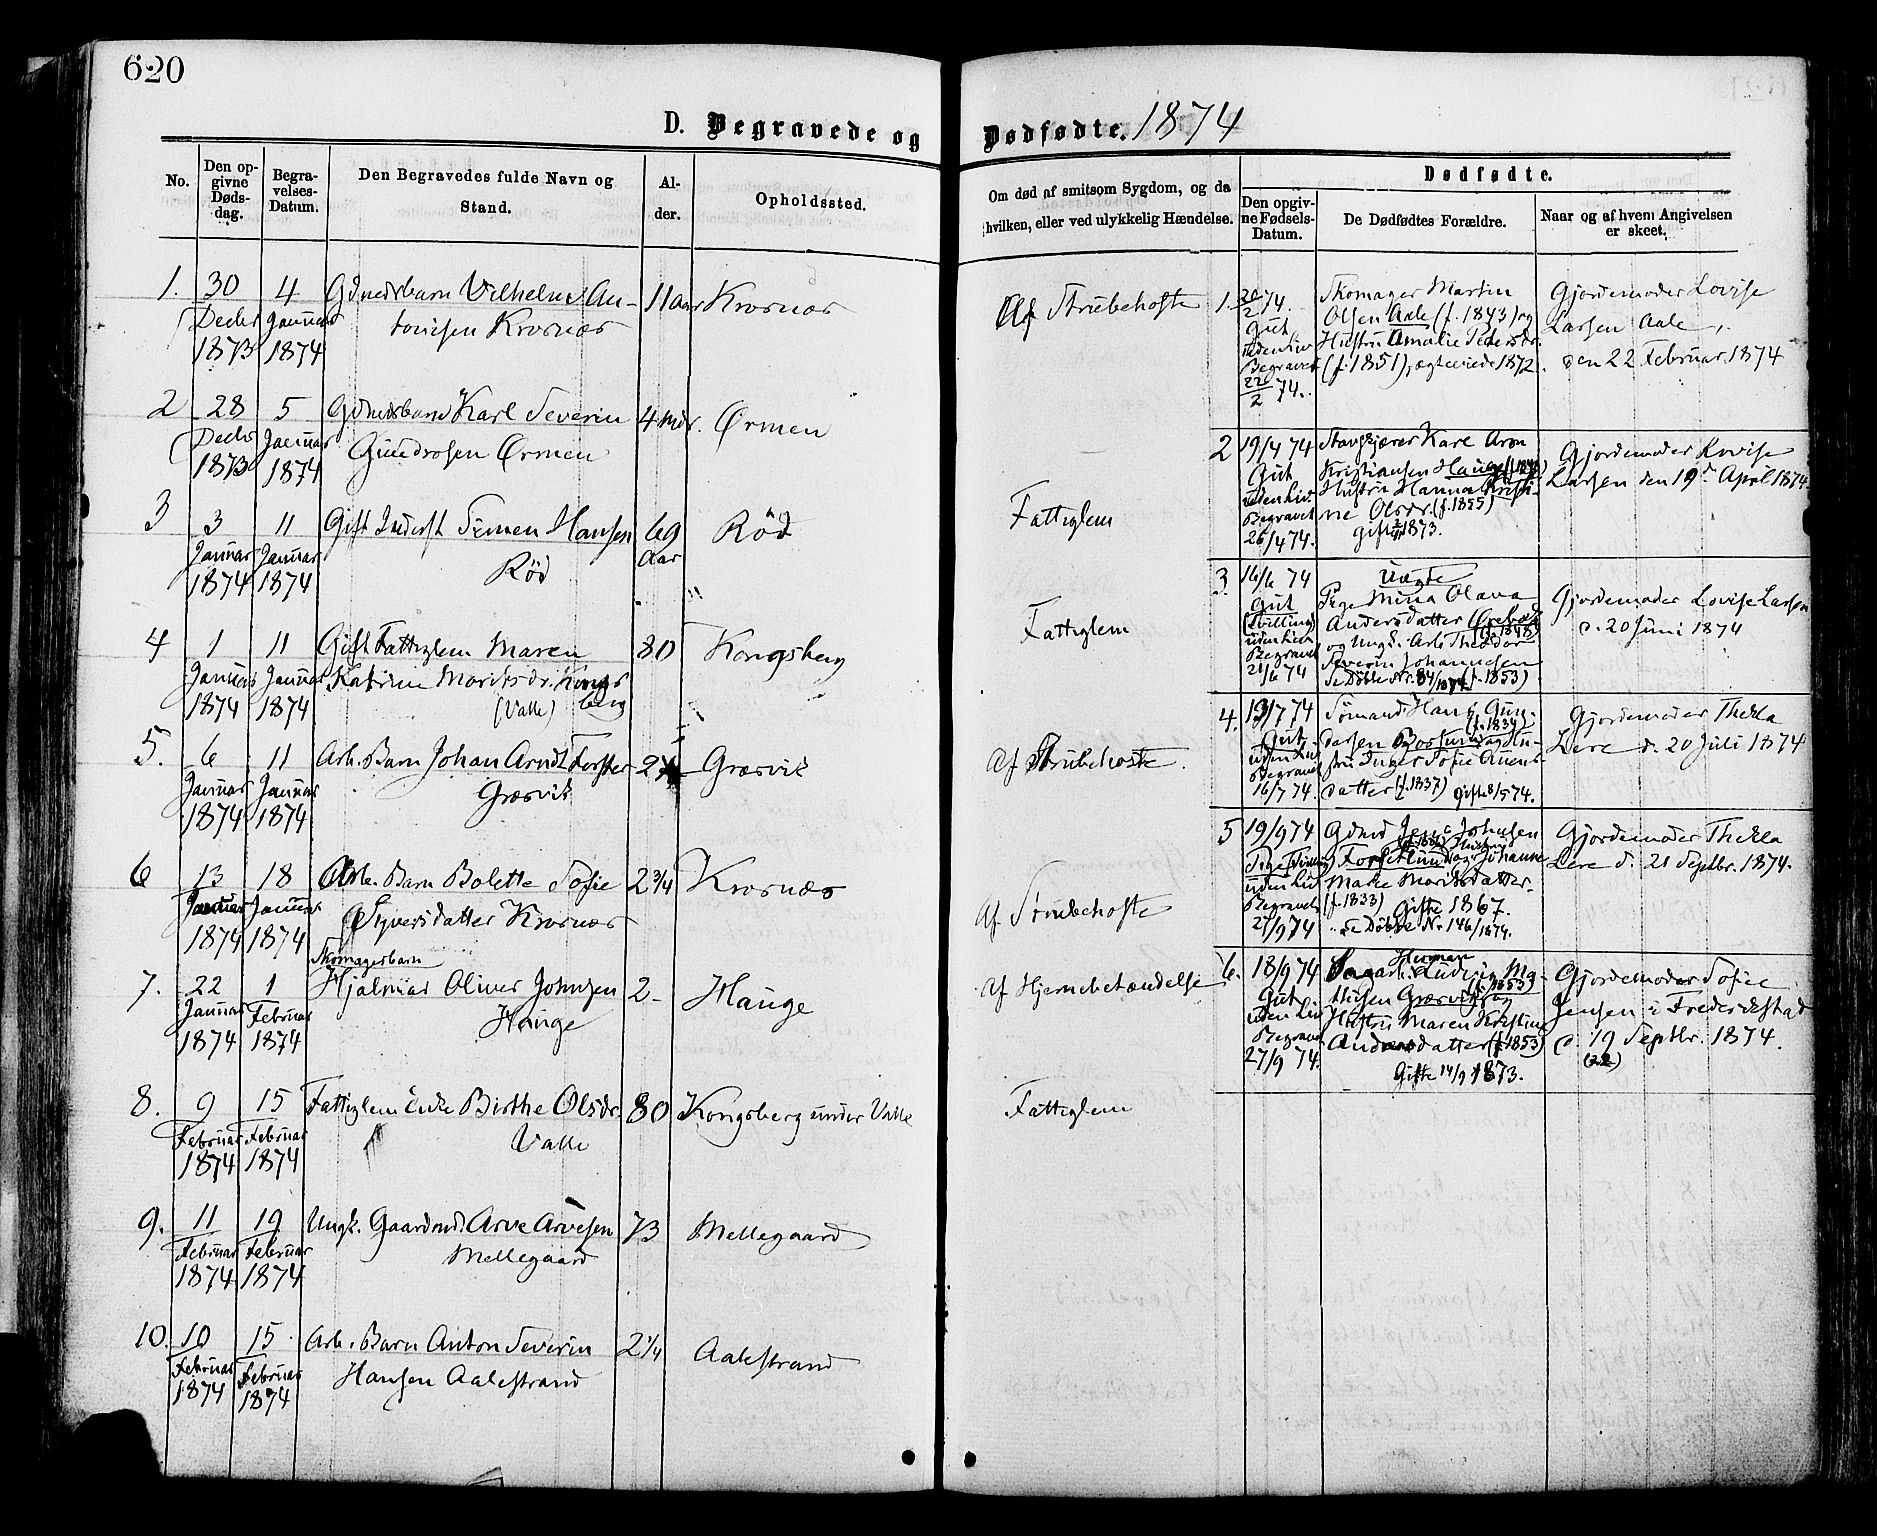 620
D. Begravede og Dødfødte. 1874
No.
Den opgivne Dødsdag.
Begravelses-Datum.
Den Begravedes fulde Navn og Stand.
Alder.
Opholdssted.
Om død af smitsom Sygdom, og da hvilken, eller ved ulykkelig Hændelse.
Dødfødte.
Den opgivne Fødsels-Datum.
De Dødfødtes Forældre.
Naar og af hvem Angivelsen er skeet.
1. 30 4 Gdmdsbarn Vilhelm An- 11 aar Krosnæs Af Strubehoste
Decbr Januar tonisen Krosnæs
1873 1874
2 28 5 Gdmdsbarn Karl Severin 4 Mdr. Ørmen
Decbr Januar Ørmen
1873 1874
3 3 11 Gift Inderst Simen Hansen 69 Rød Fattiglem
Januar Januar Rød Aar
1874 1874
4 1 11 Gift Fattiglem Maren 80 Kongsberg Fattiglem
Januar Januar Katrine Moritsdr. Kongs
1874 1874 (Valle) berg
5. 6 11 Arb. Barn Johan Arndt Forster 2 Græsvik Af Strubehoste.
Januar Januar Græsvik
1874 1874
6 13 18 Arb. Barn Bolette Sofie 2 3/4 Krosnæs Af Strubehoste
Januar Januar Syversdatter Krosnæs
1874 1874
Skomagerbarn
7. 22 1 Hjalmar Oliver Johnsen 2- Hauge Af Hjernebetændelse
Januar Februar Hauge
1874 1874
8. 9 15 Fattiglem Enke Birthe Olsdr. 80 Kongsberg under Valle Fattiglem
Februar Februar Valle
1874 1874
9. 11 19 Ungk. Gaardmd. Arve Arvesen 73 Mellegaard
Februar Februar Mellegaard
1874 1874
10. 10 15 Arb. Barn Anton Severin 2 1/4 Aalestrand
Februar Februar Hansen Aalestrand
1874 1874
1. 20/2 74. Skomager Martin Gjordemoder Lovise
Gut Olsen Aale (f. 1843) og Larsen Aale,
uden Liv Hustru Amalie Pedersdr. den 22 Februar 1874
Begravet (f. 1851), ægteviede 1872.
22/2 74.
2 19/4 74 Karl Aron Gjordemoder Lovise
Gut Kristiansen Hauge Larsen den 19de April 1874.
uden Liv Hustru Hanna Kristi-
Begravet ne Olsdr. (f. 1855)
26/4 74. gift 1873.
3. 16/6 74 Uægte
Gut Pige Mina Olava Gjordemoder Lovise Larsen
(Tvilling) Andersdatter d. 20 Juni 1874
uden Liv og Ungk. Arb. Theodor
Begravet Severin Johannesen
21/6 74 Se Døbte Nr. 84/1874. (f. 1853)
4. 13/7 74 Sømand Hans Gun- Gjordemoder Thekla
Gut (f. 1834)
uden Liv dersen og Hu- Lere d. 20 Juli 1874
Begravet stru Inger Sofie
16/7 74. datter (f. 1837) Gift 8/5 74.
5 19/9 74 Gdmd Jens Johnsen Gjordemoder Thekla
Pige Hustru
uden Liv Johanne Lere d. 21 Septbr. 1874.
Begravet Marie Moritsdatter.
27/9 74 (f. 1833) Gifte 1867.
Se Døbte Nr. 146/1874.
6. 18/9 74 Herman
Gut Ludvig Ma- Gjordemoder Sofie
uden Liv thisen Græsvik og (f. 1853) Jensen i Frederikstad
Begravet Hustru Maren Kristine d. 19 Septbr. 1874.
27/9 74. Andersdatter (f. 1853) (22)
Gifte 14/9 1873.